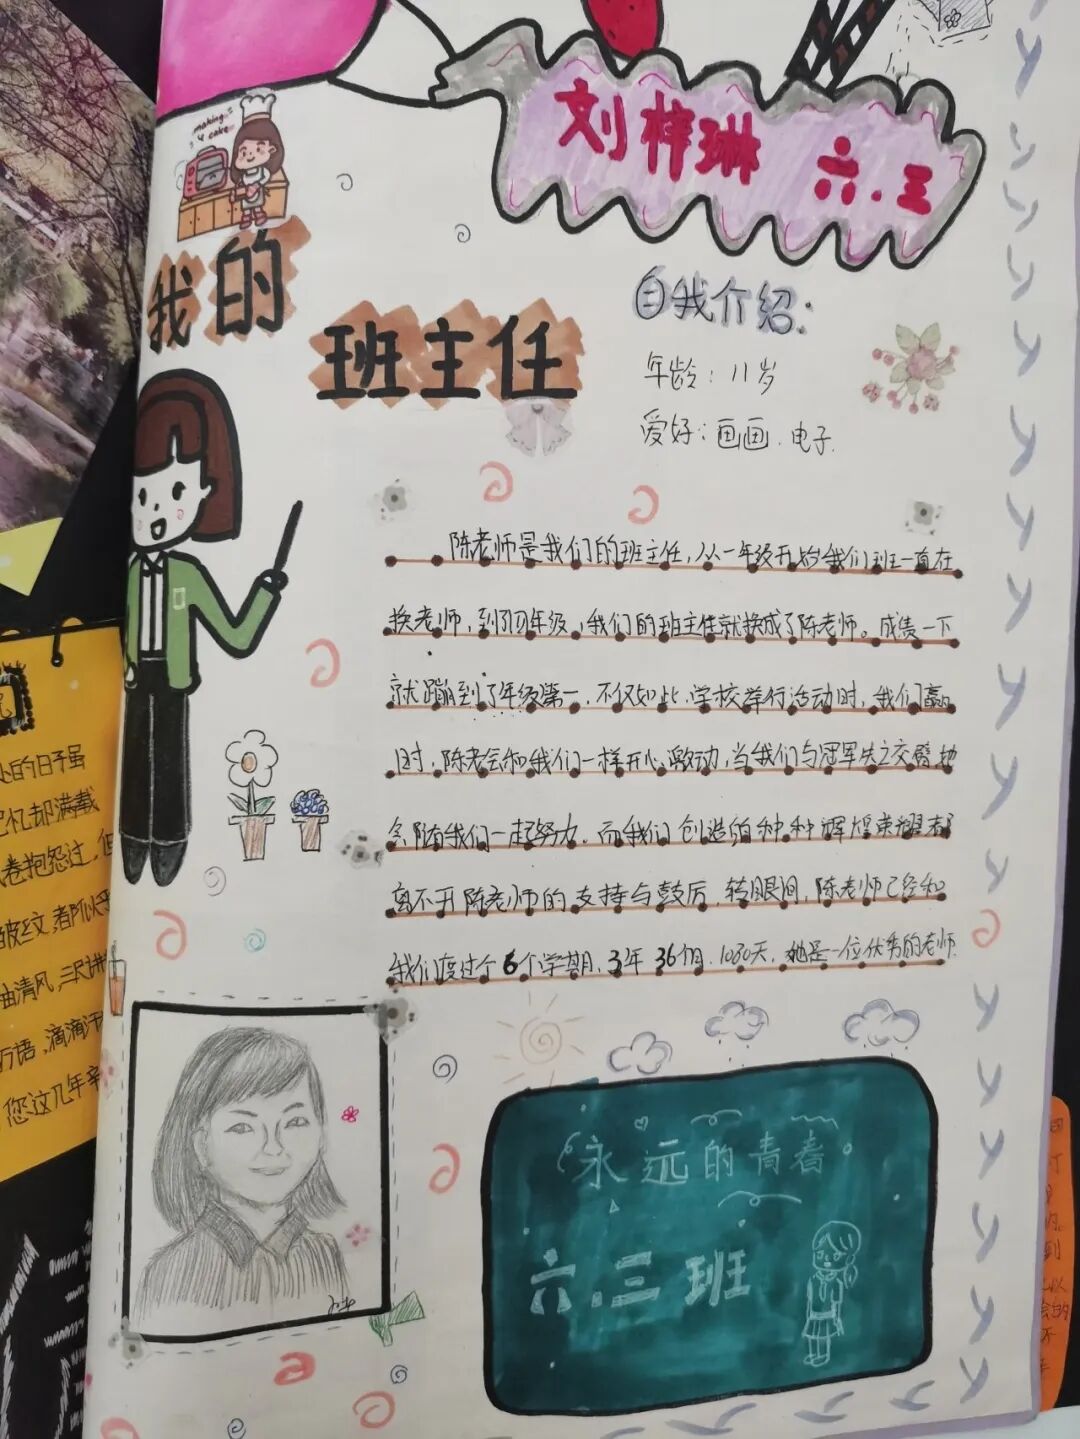 刘梓琳 六.三
making a cake
我的
班主任
自我介绍:
年龄:11岁
爱好:画画.电子.
陈老师是我们的班主任,从一年级开始我们班一直在
换老师,到了四年级,我们的班主任就换成了陈老师。成绩一下
就蹦到了年级第一.不仅如此,学校举行活动时,我们赢
时,陈老会和我们一样开心激动,当我们与冠军失之交臂,她
会陪着我们一起努力.而我们创造的种种辉煌荣耀都
离不开陈老师的支持与鼓厉.转眼间,陈老师已经和
我们度过个6个学期,3年36个月.1080天,她是一位优秀的老师.
永远的青春。
六.三班
的日子虽
记忆却满载
卷抱怨过,但
皱纹,都似
清风,三尺讲
万语,滴滴汗
您这几年辛